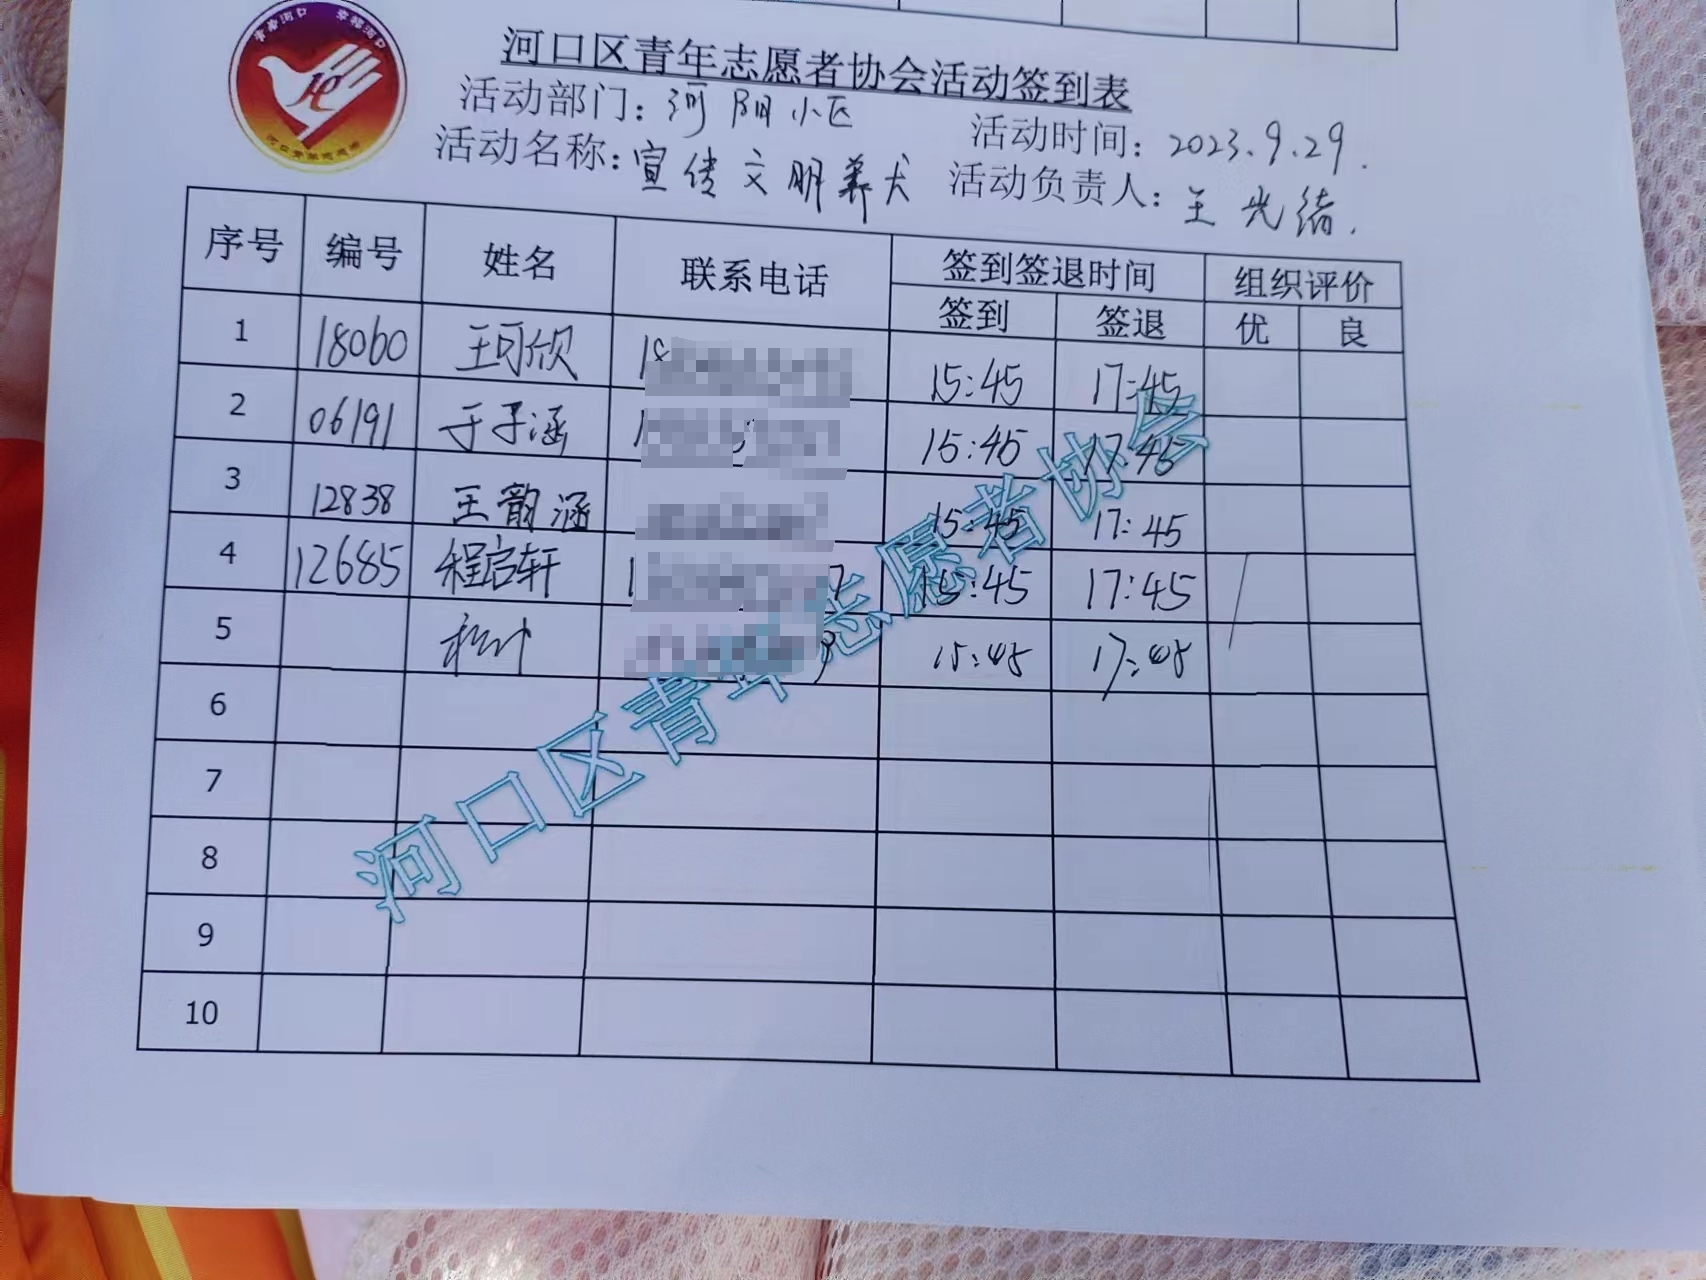 青春河口 幸福河口
河口区青年志愿者协会活动签到表
活动部门：河阳小区 活动时间：2023.9.29.
活动名称：宣传文明养犬 活动负责人：王光绪.
序号 编号 姓名 联系电话 签到签退时间 组织评价
签到 签退 优 良
1 18060 王可欣 18 15:45 17:45
2 06191 于子涵 1 15:45 17:45
3 12838 王韵涵 15:45 17:45
4 12685 程启轩 1 7 15:45 17:45
5 15:45 17:45
6
7
8
9
10
河口区青年志愿者协会